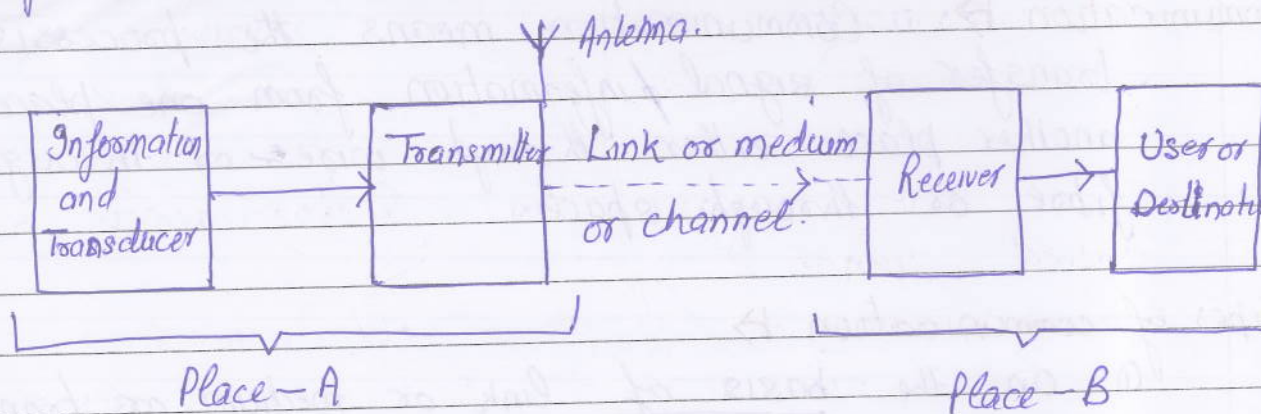 Antenna.
Information
and
Transducer
Transmitter
Link or medium
or channel.
Receiver
User or
Place-A
Place-B